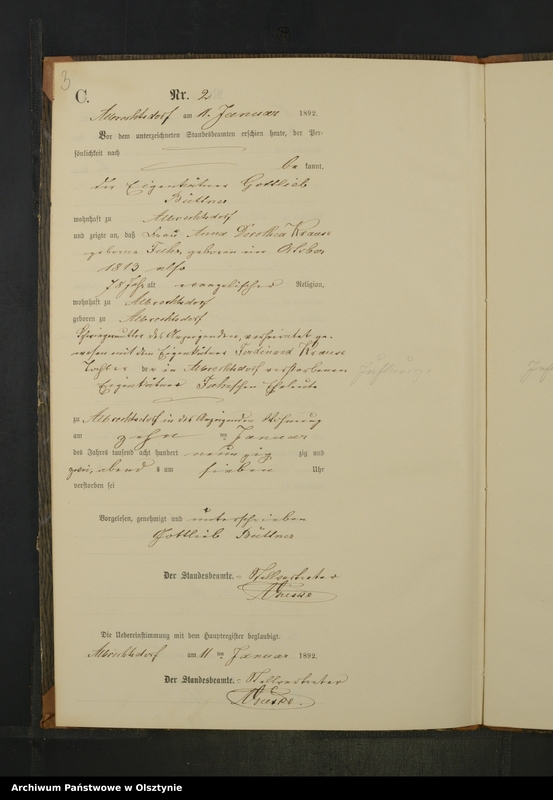 3
C.
Nr. 2
Albrechtsdorf am 11. Januar 1892.
Vor dem unterzeichneten Standesbeamten erschien heute, der Per-
sönlichkeit nach
be kannt,
der Eigenkätner Gottlieb
Büttner
wohnhaft zu Albrechtsdorf
und zeigte an, daß Frau Anna Dorothea Krause
geborene geboren im October
1813 also
78 Jahr alt evangelischer Religion,
wohnhaft zu Albrechtsdorf
geboren zu Albrechtsdorf
Schwiegermutter des Anzeigenden, verheirathet ge-
wesen mit dem Eigenkätner Ferdinand Krause
Tochter der in Albrechtsdorf verstorbenen
Eigenkätner Eheleute
zu Albrechtsdorf in des Anzeigenden Wohnung
am zehn ten Januar
des Jahres tausend acht hundert neunzig zig und
zwei, abend s um sieben Uhr
verstorben sei
Vorgelesen, genehmigt und unterschrieben
Gottlieb Büttner
Der Standesbeamte. Stellvertreter
Die Uebereinstimmung mit dem Hauptregister beglaubigt.
Albrechtsdorf am 11 ten Januar 1892.
Der Standesbeamte. Stellvertreter
Archiwum Państwowe w Olsztynie